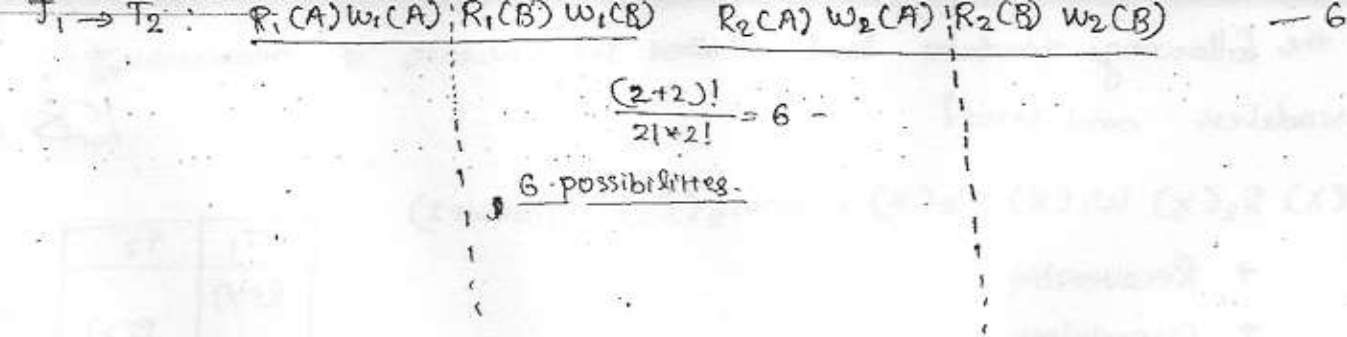 T₁ → T₂ : R₁(A) W₁(A) R₁(B) W₁(B) R₂(A) W₂(A) R₂(B) W₂(B) — 6
(2+2)!
2! * 2! = 6 -
6 possibilittes.